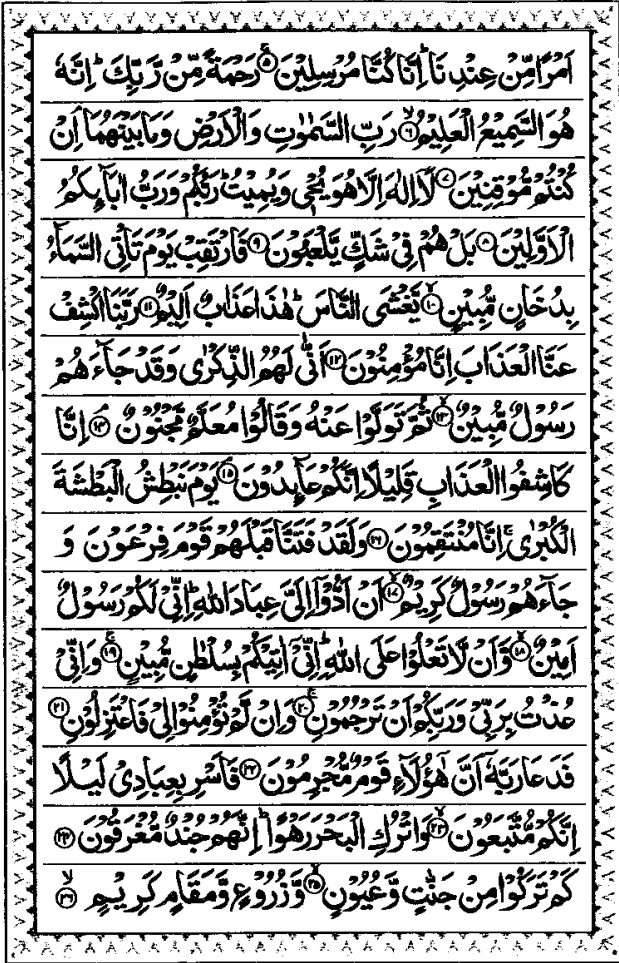 اَمْرًا مِّنْ عِنْدِنَا ؕ اِنَّا كُنَّا مُرْسِلِيْنَ ۚ۝۵ رَحْمَةً مِّنْ رَّبِّكَ ؕ اِنَّهٗ
هُوَ السَّمِيْعُ الْعَلِيْمُ ۙ۝۶ رَبِّ السَّمٰوٰتِ وَالْاَرْضِ وَمَا بَيْنَهُمَا اِنْ
كُنْتُمْ مُّوْقِنِيْنَ ۝۷ لَاۤ اِلٰهَ اِلَّا هُوَ يُحْيٖ وَيُمِيْتُ ؕ رَبُّكُمْ وَرَبُّ اٰبَآئِكُمُ
الْاَوَّلِيْنَ ۝۸ بَلْ هُمْ فِيْ شَكٍّ يَّلْعَبُوْنَ ۝۹ فَارْتَقِبْ يَوْمَ تَاْتِي السَّمَآءُ
بِدُخَانٍ مُّبِيْنٍ ۙ۝۱۰ يَّغْشَى النَّاسَ ؕ هٰذَا عَذَابٌ اَلِيْمٌ ۝۱۱ رَبَّنَا اكْشِفْ
عَنَّا الْعَذَابَ اِنَّا مُؤْمِنُوْنَ ۝۱۲ اَنّٰى لَهُمُ الذِّكْرٰى وَقَدْ جَآءَهُمْ
رَسُوْلٌ مُّبِيْنٌ ۙ۝۱۳ ثُمَّ تَوَلَّوْا عَنْهُ وَقَالُوْا مُعَلَّمٌ مَّجْنُوْنٌ ۘ۝۱۴ اِنَّا
كَاشِفُوا الْعَذَابِ قَلِيْلًا اِنَّكُمْ عَآئِدُوْنَ ۘ۝۱۵ يَوْمَ نَبْطِشُ الْبَطْشَةَ
الْكُبْرٰى ۚ اِنَّا مُنْتَقِمُوْنَ ۝۱۶ وَلَقَدْ فَتَنَّا قَبْلَهُمْ قَوْمَ فِرْعَوْنَ وَ
جَآءَهُمْ رَسُوْلٌ كَرِيْمٌ ۙ۝۱۷ اَنْ اَدُّوْۤا اِلَيَّ عِبَادَ اللّٰهِ ؕ اِنِّيْ لَكُمْ رَسُوْلٌ
اَمِيْنٌ ۙ۝۱۸ وَّاَنْ لَّا تَعْلُوْا عَلَى اللّٰهِ ؕ اِنِّيْۤ اٰتِيْكُمْ بِسُلْطٰنٍ مُّبِيْنٍ ۚ۝۱۹ وَاِنِّيْ
عُذْتُ بِرَبِّيْ وَرَبِّكُمْ اَنْ تَرْجُمُوْنِ ۚ۝۲۰ وَاِنْ لَّمْ تُؤْمِنُوْا لِيْ فَاعْتَزِلُوْنِ ۝۲۱
فَدَعَا رَبَّهٗۤ اَنَّ هٰۤؤُلَآءِ قَوْمٌ مُّجْرِمُوْنَ ۝۲۲ فَاَسْرِ بِعِبَادِيْ لَيْلًا
اِنَّكُمْ مُّتَّبَعُوْنَ ۙ۝۲۳ وَاتْرُكِ الْبَحْرَ رَهْوًا ؕ اِنَّهُمْ جُنْدٌ مُّغْرَقُوْنَ ۝۲۴
كَمْ تَرَكُوْا مِنْ جَنّٰتٍ وَّعُيُوْنٍ ۙ۝۲۵ وَّزُرُوْعٍ وَّمَقَامٍ كَرِيْمٍ ۙ۝۲۶